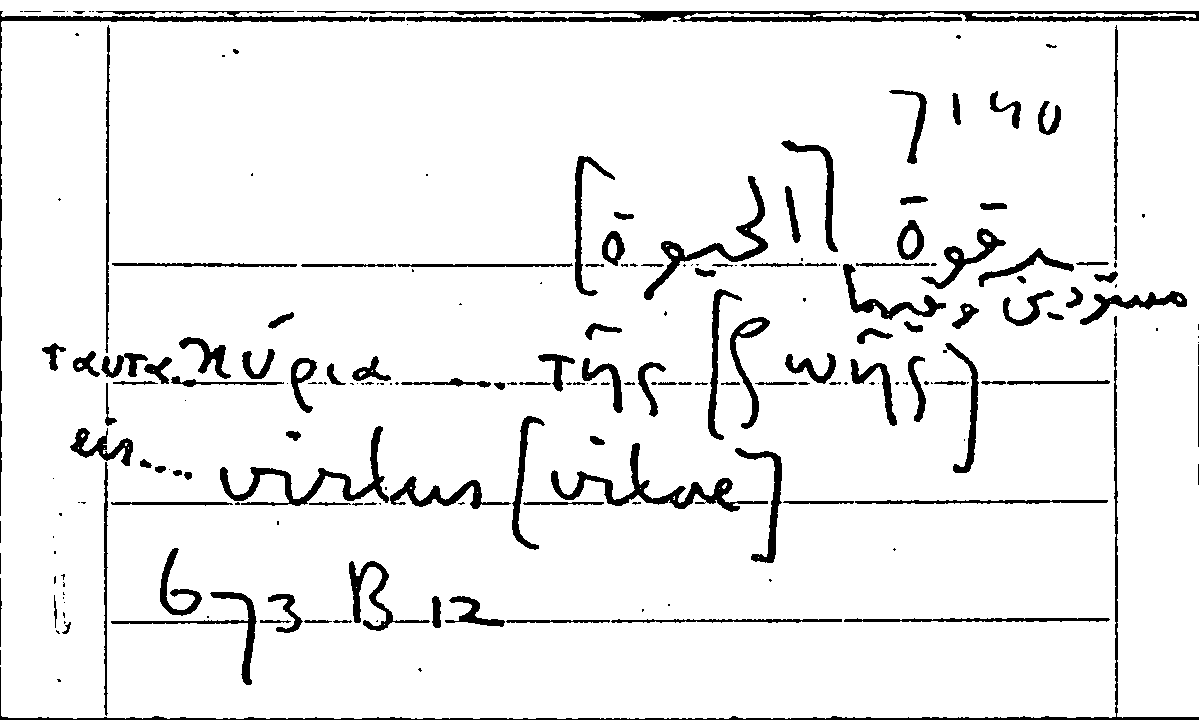 7140
قوة [الحيوة]
ταυτα..κύρια .... τῆς [ζωῆς]
eis..... virtus [vitae]
673 B 12